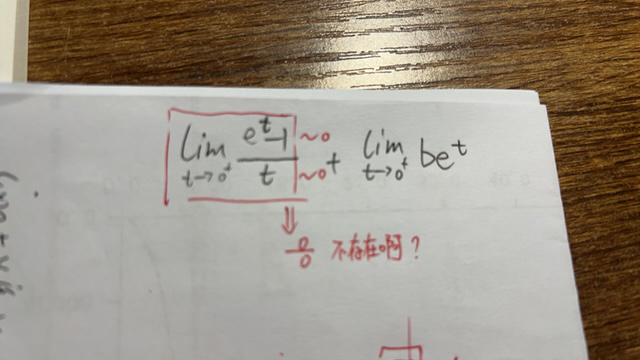 lim t→0⁺ (eᵗ-1)/t ~0 ~0 + lim t→0⁺ beᵗ
⇓
0/0 不存在啊?